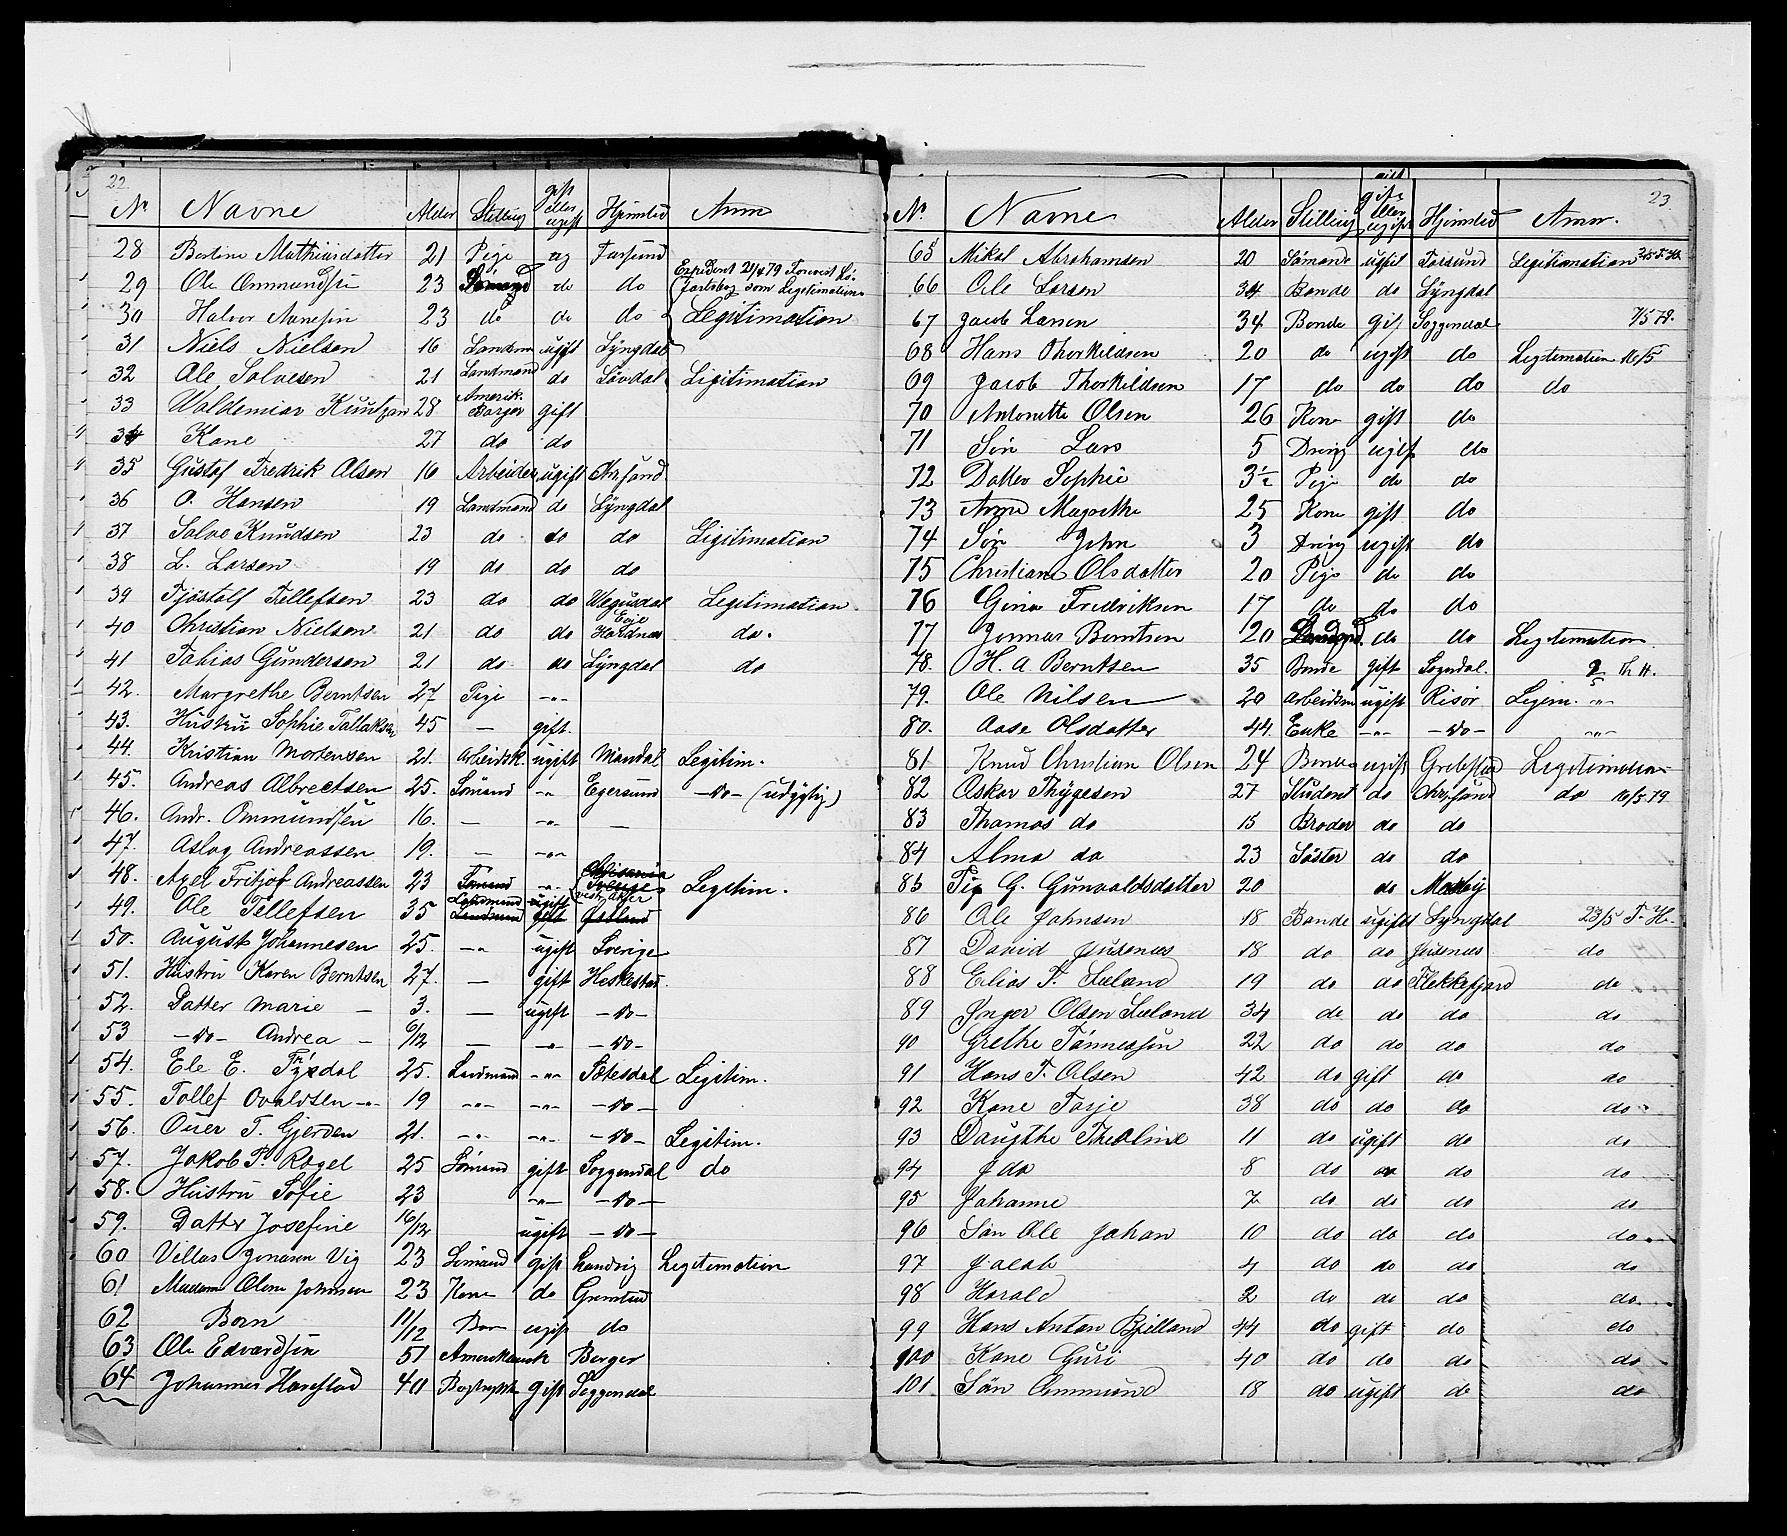 22.
No Navne Alder Stilling gift eller ugift Hjemsted Anm
28 Bertine Mathiasdatter 21 Pige ug Farsund
29 Ole Ommundsen 23 Sömand do do Expederet 21/4 79 Forevist Sö-
fartsbog som Legitimation
30 Halvor Aanesen 23 do do do Legitimation
31 Niels Nielsen 16 Landm ugift Lyngdal
32 Ole Salvesen 21 Landmand do Lövdal Legitimation
33 Waldemar 28 Amerik. Borger gift
34 Kone 27 do do
35 Gustaf Fredrik Olsen 16 Arbeider ugift Chrsand
36 O. Hansen 19 Landmand do Lyngdal
37 Salve Knudsen 23 do do do Legitimation
38 L. Larsen 19 do do do
39 Tjöstolf Tellefsen 23 do do Wegusdal Legitimation
40 Christian Nielsen 21 do do Evje Hordnæs do.
41 Tobias Gundersen 21 do do Lyngdal do
42. Margrethe Berntsen 27 Pige -"-
43. Hustru Sophie Tallaksen 45 — gift.
44. Kristian Mortensen 21. Arbeidsk. ugift Mandal Legitim.
45. Andreas Albrectsen 25. Sömand -"- Egersund -do- (udygtig)
46. Andr. Ommundsen 16. — -"- —
47. Aslag Andreassen 19. — -"-
48. Axel Fritjof Andreassen 23 Sömand -"- Sverige Legitim.
49. Ole Tellefsen 35 Landmand ugift
50. August Johannesen 25. -"- ugift Sverige
51. Hustru Karen Berntsen 27. — gift Heskestad.
52. Datter Marie — 3. — ugift -do-
53 -do- Andrea — 6/12 — -"- -do-
54. Ele E. 25. Landmand -"- Sætesdal Legitim.
55. Tollef Ovaldsen -"- 19 -"- -"- -do-
56. Ouer T. Gjerden 21. -"- -"- -do- Legitim.
57. Jakob T. Rögel 25 Sömand gift Soggendal do
58. Hustru Sofie 23 -"- -do-
59. Datter Josefine 16/12 ugift -do-
60 Villas Jonasen Vig 23 Sömand gift Landvig Legitimation
61 Madam Olene Johnsen 23 Kone do Grimstad
62 Barn 11/12 Barn ugift do
63 Ole Edvardsen 51 Amerikansk Borger
64 Johannes Hanestad 40 gift Soggendal
23
No Navne Alder Stilling gift eller ugift Hjemsted Anm.
65 Mikal Abrahamsen 20 Sömand ugift Farsund Legitimation
66 Ole Larsen 34 Bonde do Lyngdal
67 Jacob Larsen 34 Bonde gif Soggendal 7/5 79.
68 Hans Thorkildsen 20 do ugift do Legitimation 10/5
69 Jacob Thorkildsen 17 do do do do
70 Antonette Olsen 26 Kone gift do
71 Sön Lars 5 Dreng ugift do
72 Datter Sophie 3½ Pige do do
73 Anne Magrethe 25 Kone gift do
74 Sön John 3 Dreng ugift do
75 Christiane Olsdatter 20 Pige do do
76 Gina Fredriksen 17 do do do
77 Jonnas Berntsen 20 do do Legitimation
78. H. A Berntsen 35 Bonde gift Sogndal. 2/5 Th H.
79. Ole Nilsen 20 arbeidsm ugift Risör Legim. -"-
80. Aase Olsdatter 44. Enke -"- -do- -"-
81 Knud Christian Olsen 24 Bonde ugift Legitimation
82 Oskar Thygesen 27 Student do Chrsand do 10/5 79
83 Thomas do 15 Broder do do
84 Alma do 23 Söster do do
85 G. Gunvaldsdatter 20 do Mosby
86 Ole Johnsen 18 Bonde ugift Lyngdal 23/5 T. H.
87 David Jusenæs 18 do do Jusenæs do
88 Elias T. Lieland 19 do do Flekkefjord do
89 Ynger Olsen Lieland 34 do do do do
90 Grethe Tönnessen 22 do do do do
91 Hans T. Olsen 42 do gift do do
92 Kone Tarje 38 do do do do
93 Daugthe Thealine 11 do ugift do do
94 Ida 8 do do do do
95 Johanne 7 do do do do
96 Sön Ole Johan 10 do do do do
97 Jacob 4 do do do do
98 Harald 2 do do do do
99 Hans Anton Bjelland 44 do gift do do
100 Kone Guri 40 do do do do
101 Sön Ommund 18 do ugift do do